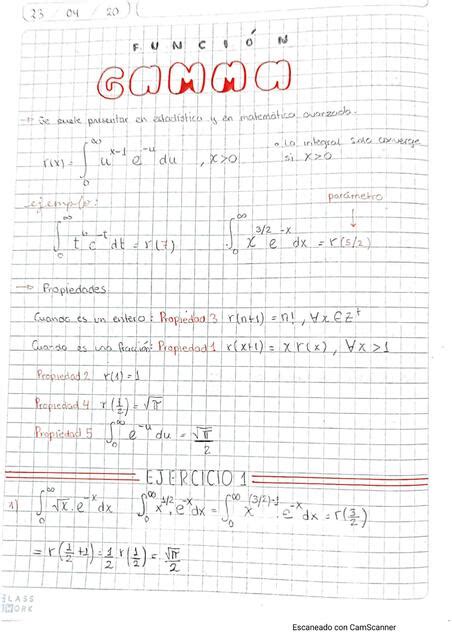 23 / 04 / 20
FUNCIÓN
GAMMA
→ Se suele presentar en estadística y en matemática avanzada.
r(x) = ∫₀^∞ u^(x-1) e^(-u) du , x>0
• La integral solo converge
si x>0
ejemplo:
parámetro
∫₀^∞ t^6 e^(-t) dt = r(7)
∫₀^∞ x^(3/2) e^(-x) dx = r(5/2)
→ Propiedades
Cuando es un entero: Propiedad 3 r(n+1) = n! , ∀x∈Z⁺
Cuando es una fracción: Propiedad 1 r(x+1) = x r(x) , ∀x>1
Propiedad 2 r(1) = 1
Propiedad 4 r(1/2) = √π
Propiedad 5 ∫₀^∞ e^(-u) du = √π/2
EJERCICIO 1
1) ∫₀^∞ √x . e^(-x) dx ∫₀^∞ x^(1/2) . e^(-x) dx = ∫₀^∞ x^((3/2)-1) . e^(-x) dx = r(3/2)
= r(1/2 + 1) = 1/2 r(1/2) = √π/2
CLASS
WORK
Escaneado con CamScanner